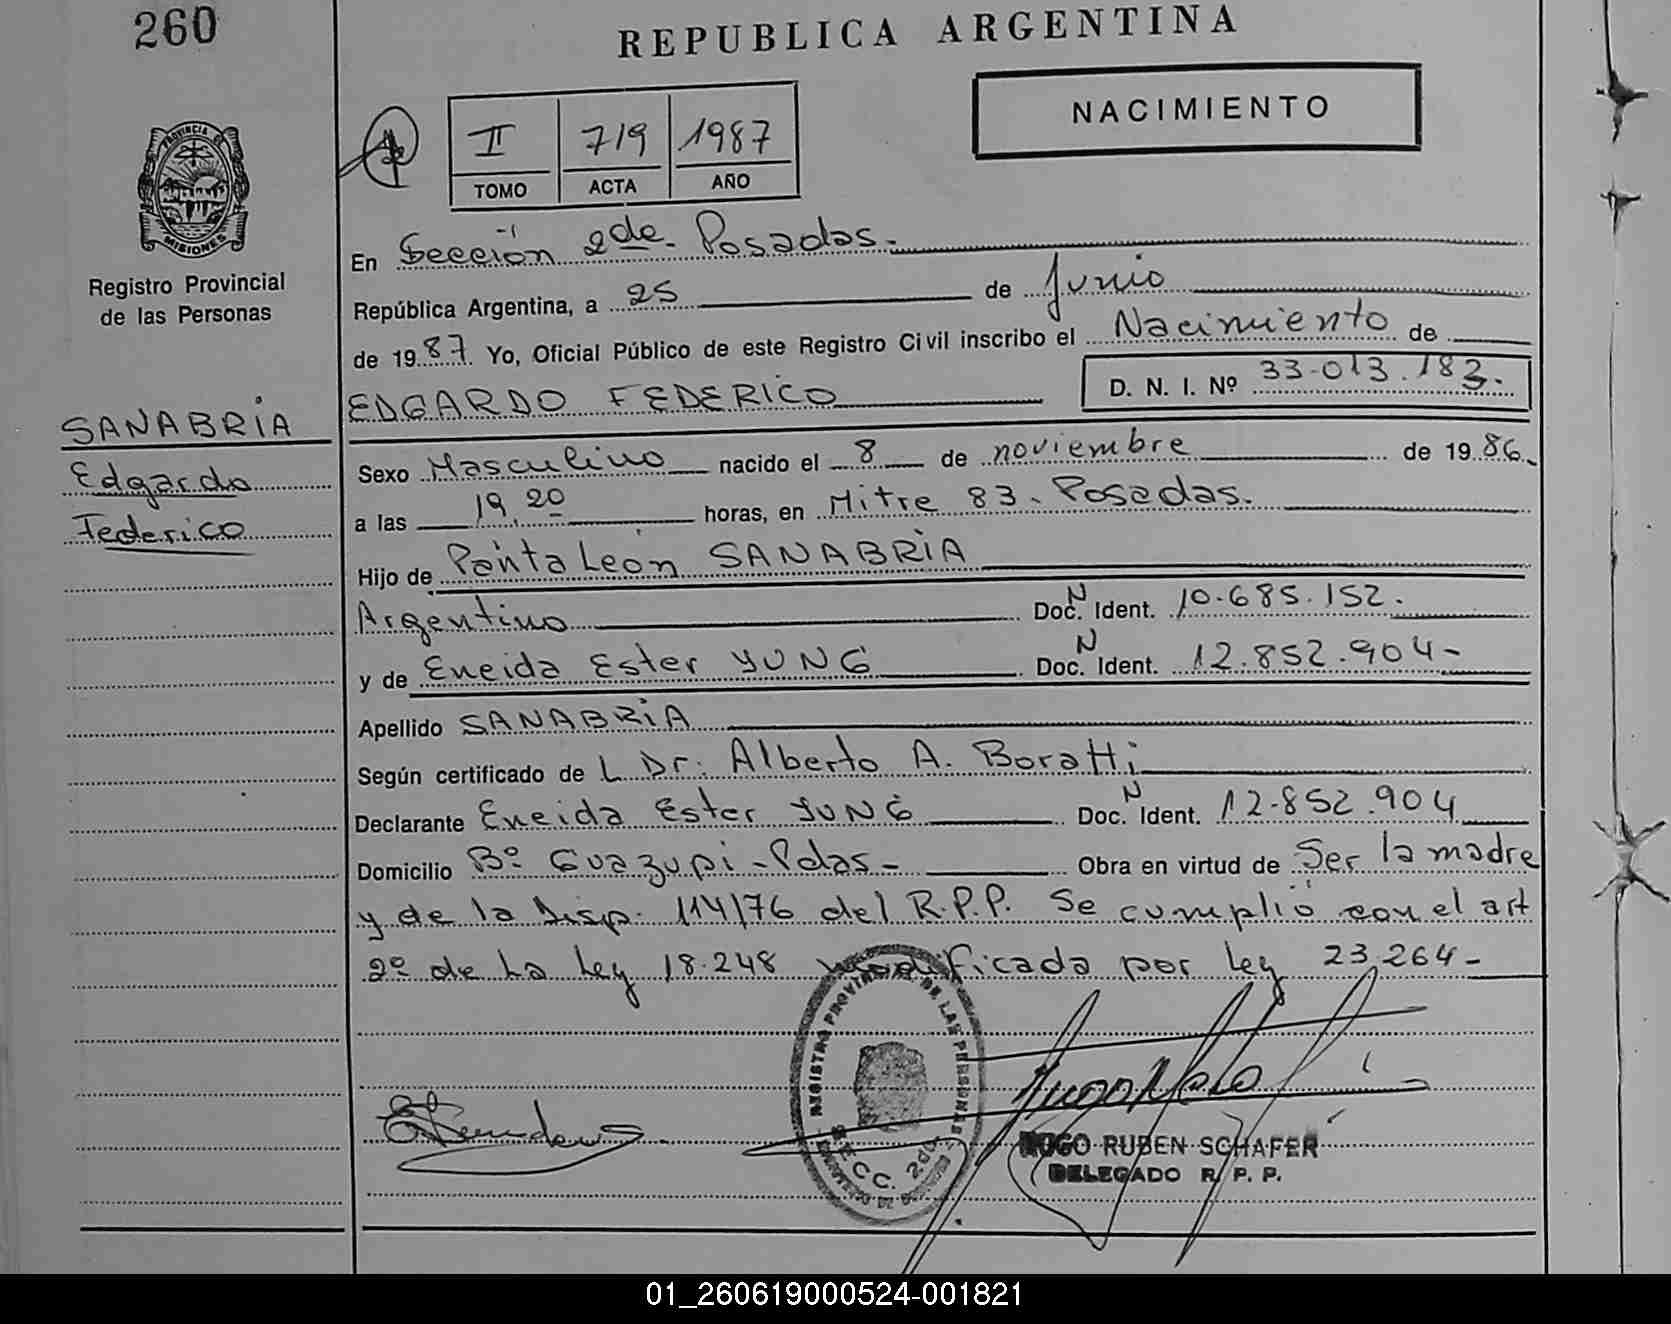 260
REPUBLICA ARGENTINA
NACIMIENTO
II 719 1987
TOMO ACTA AÑO
PROVINCIA DE
MISIONES
Registro Provincial
de las Personas
SANABRIA
Edgardo
Federico
En Sección 2de. Posadas.
República Argentina, a 25 de Junio
de 1987. Yo, Oficial Público de este Registro Civil inscribo el Nacimiento de
EDGARDO FEDERICO D. N. I. Nº 33.013.183.
Sexo Masculino nacido el 8 de noviembre de 1986.
a las 19,20 horas, en Mitre 83. Posadas.
Hijo de Pantaleón SANABRIA
Argentino Doc. N Ident. 10.685.152.
y de Eneida Ester YUNG Doc. N Ident. 12.852.904-
Apellido SANABRIA
Según certificado de L Dr. Alberto A. Boratti
Declarante Eneida Ester YUNG Doc. N Ident. 12.852.904
Domicilio Bº Guazupi - Pdas - Obra en virtud de Ser la madre
y de la Disp. 114/76 del R.P.P. Se cumplió con el art
2º de La Ley 18.248 modificada por Ley 23.264-
REGISTRO PROVINCIAL DE LAS PERSONAS
SECC. 2da
HUGO RUBEN SCHAFER
DELEGADO R. P. P.
01_260619000524-001821